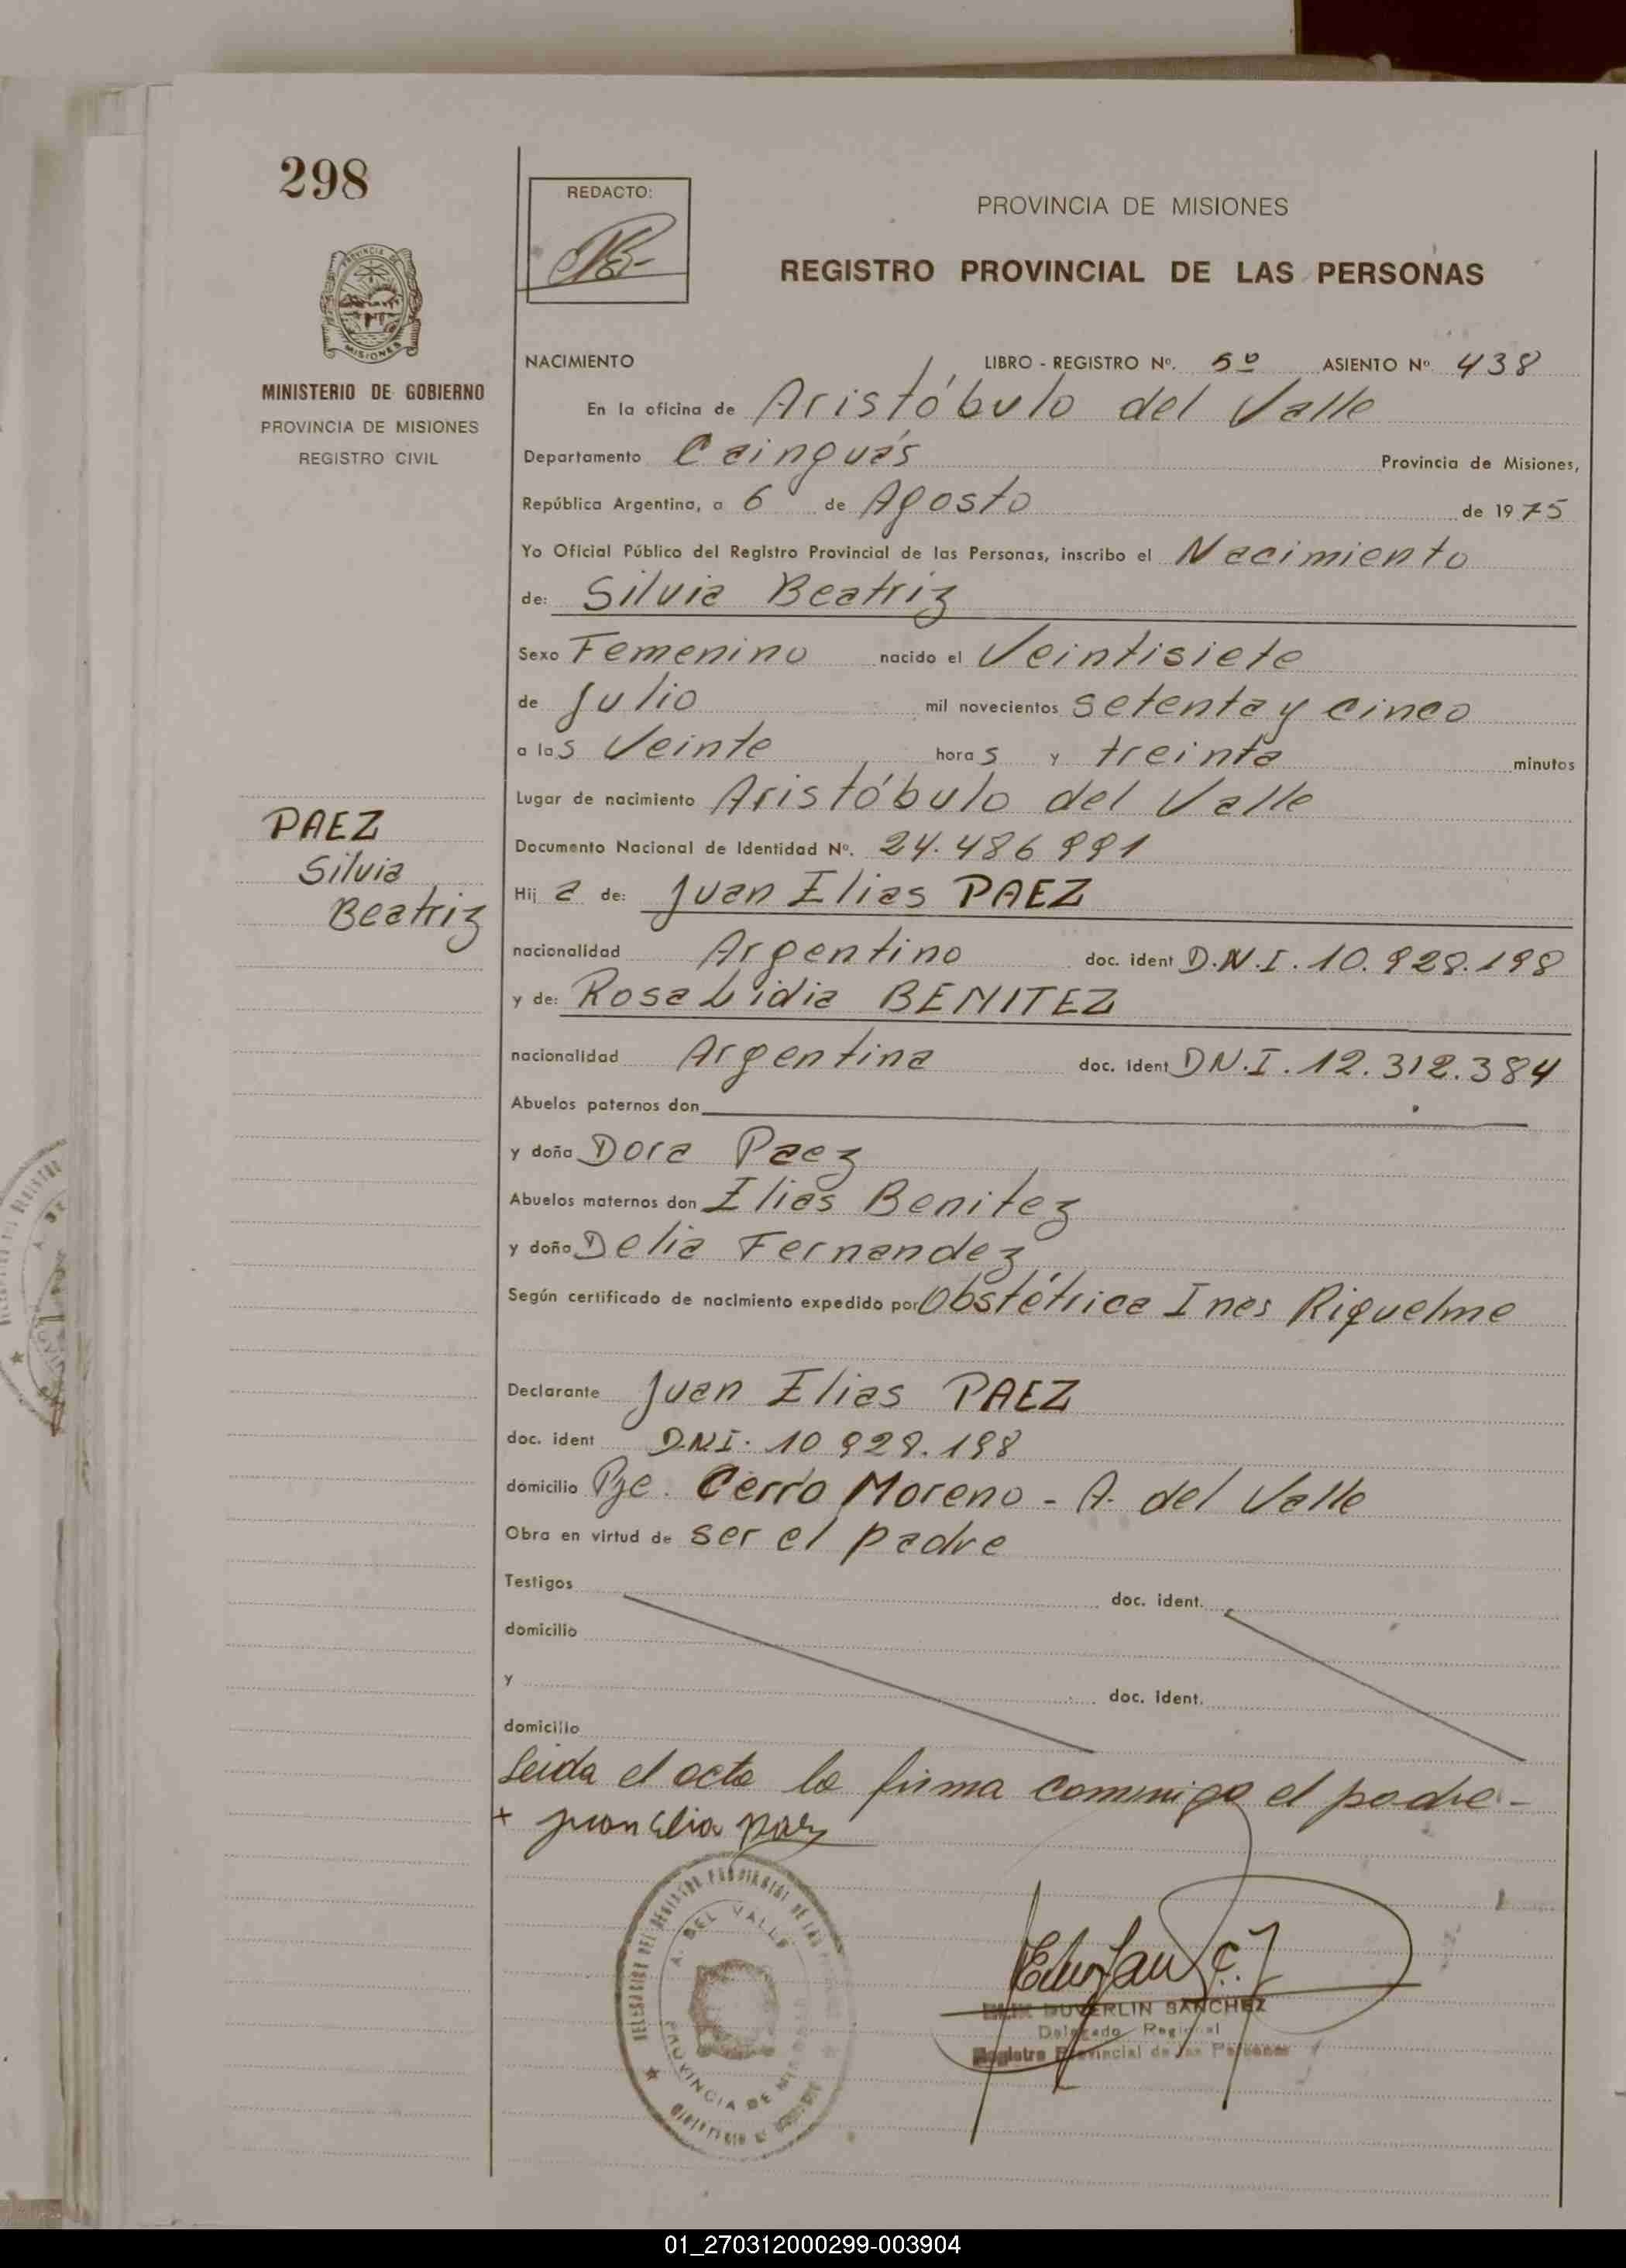 298
REDACTO:
PROVINCIA DE MISIONES
REGISTRO PROVINCIAL DE LAS PERSONAS
PROVINCIA DE
MISIONES
MINISTERIO DE GOBIERNO
PROVINCIA DE MISIONES
REGISTRO CIVIL
NACIMIENTO LIBRO - REGISTRO Nº. 5º ASIENTO Nº 438
En la oficina de Aristóbulo del Valle
Departamento Cainguás Provincia de Misiones,
República Argentina, a 6 de Agosto de 1975
Yo Oficial Público del Registro Provincial de las Personas, inscribo el Nacimiento
de: Silvia Beatriz
Sexo Femenino nacido el Veintisiete
de Julio mil novecientos setenta y cinco
a las Veinte horas y treinta minutos
Lugar de nacimiento Aristóbulo del Valle
PAEZ
Silvia
Beatriz
Documento Nacional de Identidad Nº. 24.486 991
Hija de: Juan Elias PAEZ
nacionalidad Argentino doc. ident D.N.I. 10.928.198
y de: Rosa Lidia BENITEZ
nacionalidad Argentina doc. ident D.N.I. 12.312.384
Abuelos paternos don
y doña Dora Paez
Abuelos maternos don Elias Benitez
y doña Delia Fernandez
Según certificado de nacimiento expedido por Obstétrica Ines Riquelme
Declarante Juan Elias PAEZ
doc. ident D.N.I. 10 928.198
domicilio Pje. Cerro Moreno - A. del Valle
Obra en virtud de ser el padre
Testigos doc. ident.
domicilio
y doc. ident.
domicilio
Leida el acta la firma conmigo el padre -
+ juan elia paez
DELEGACION DEL REGISTRO PROVINCIAL DE LAS
A. DEL VALLE
PROVINCIA DE MISIONES
DUVERLIN SANCHEZ
Delegado Regional
Registro Provincial de las Personas
01_270312000299-003904